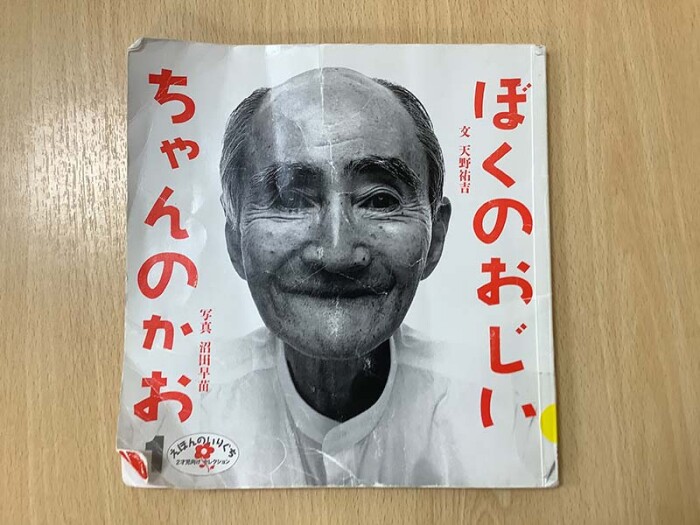 ぼくのおじい
ちゃんのかお
文 天野祐吉
写真 沼田早苗
1
えほんのいりぐち
2才児向け セレクション